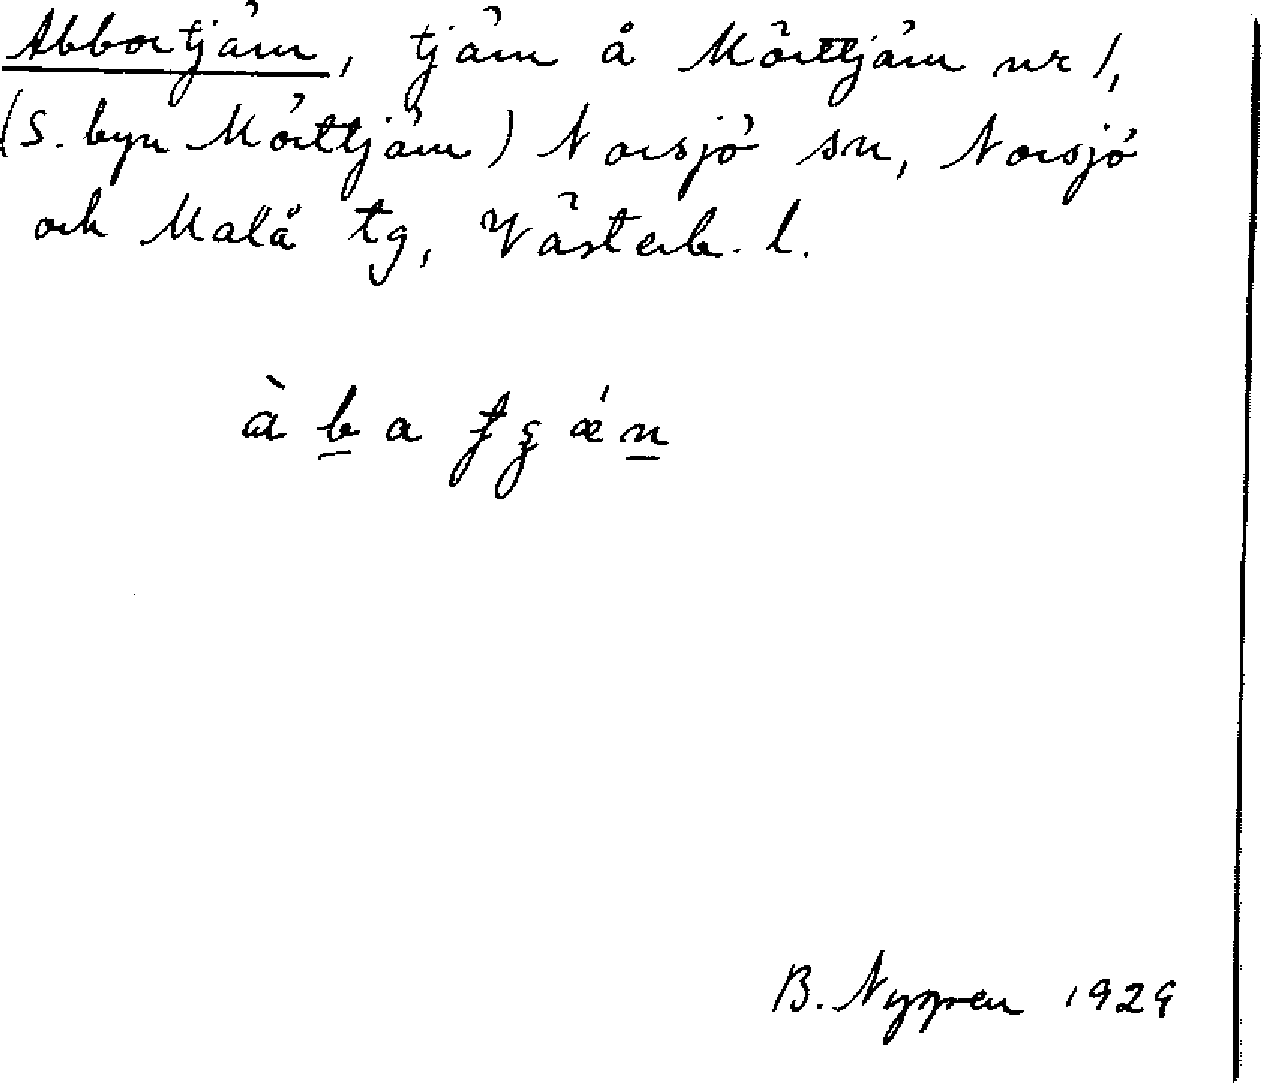 Abbortjärn, tjärn å Mörttjärn nr 1,
(S. byn Mörttjärn) Norsjö sn, Norsjö
och Malå tg, Västerb. l.
B. Nygren 1929